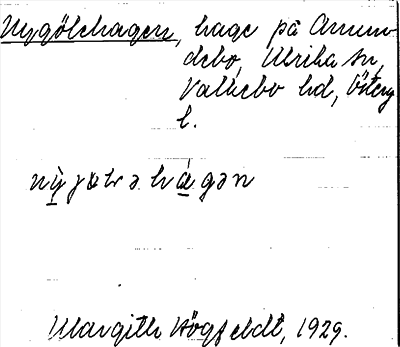 Nygölehagen, hage på Amun-
debo, Ulrika sn,
Valkebo hd, Österg
l.
nỳjølə hágən
Margith Högfeldt, 1929.